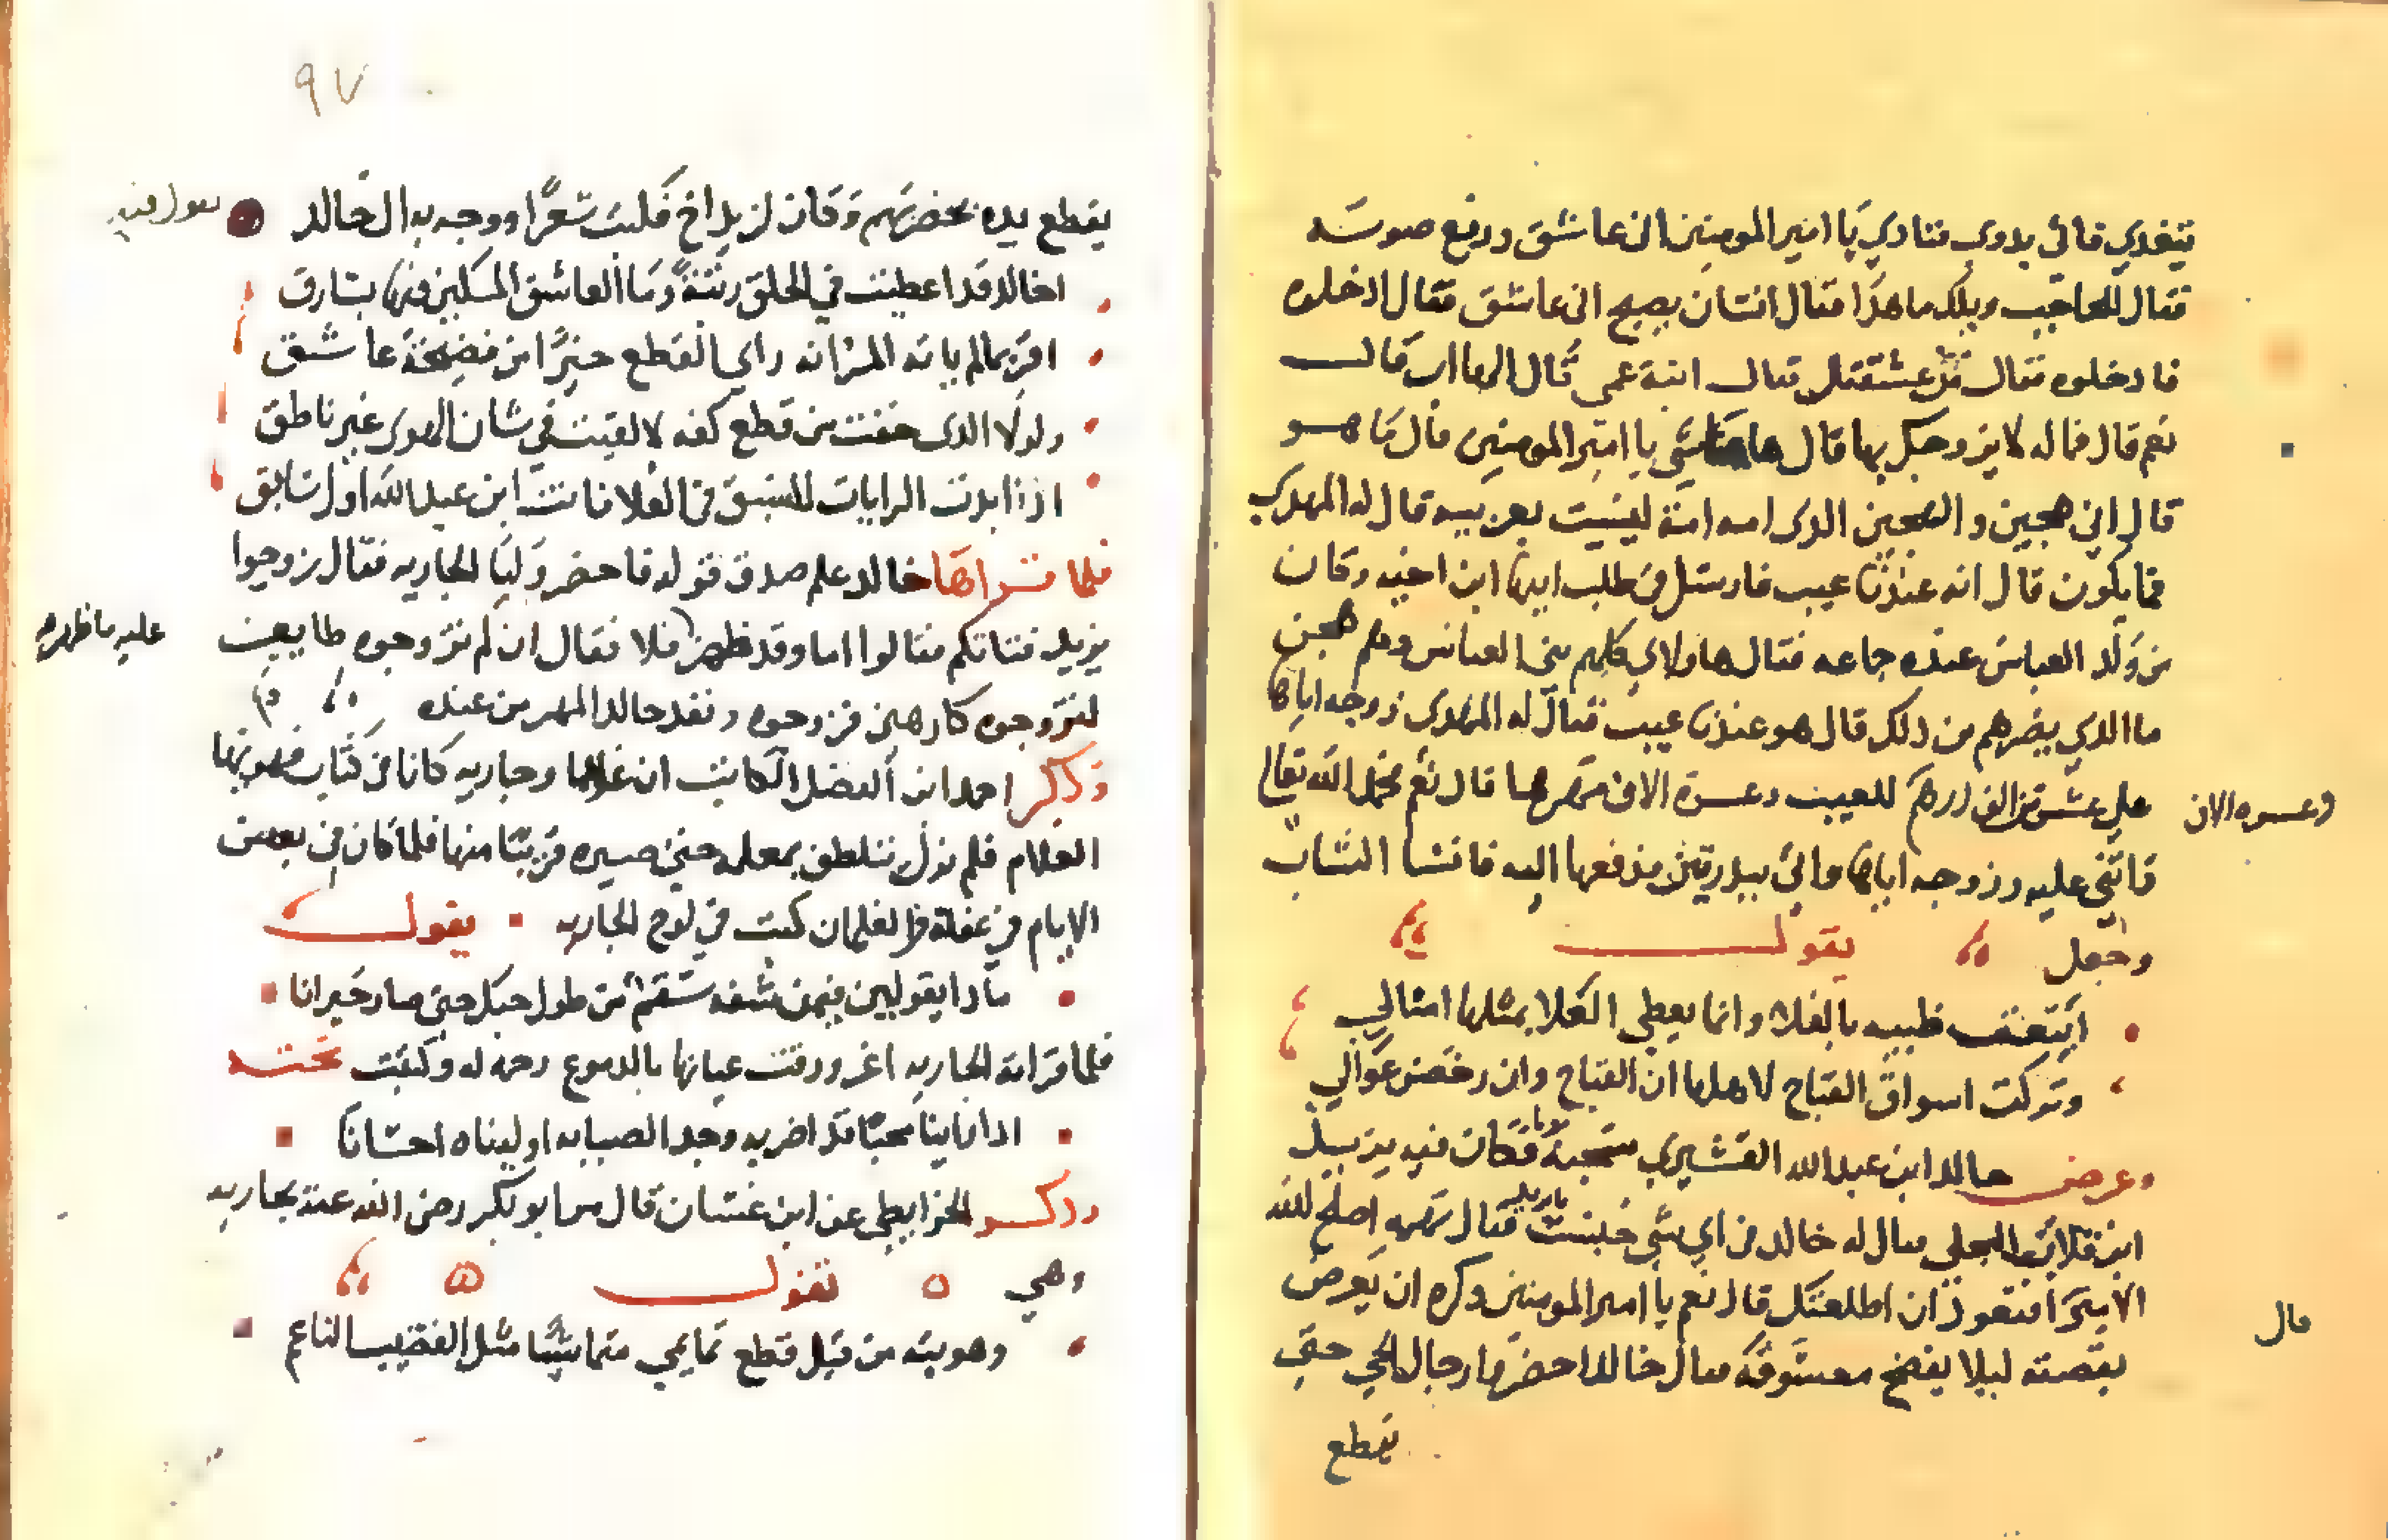 يتغدي فاتي بدوي فنادي يا امير المومنين اني عاشق ورفع صوته
فقال للحاجب ويلك ما هذا فقال انسان يصيح اني عاشق فقال ادخلوه
فادخلوه فقال من عشيقتك قال ابنة عمي قال الها اب قال
نعم قال فما له لا يزوجك بها قال هاهنا شي يا امير المومنين قال ما هو
قال اني هجين والهجين الدي امه امة ليست بعربيه قال له المهدي
فما يكون قال انه عندنا عيب فارسل في طلب ابيها ابن اخيه وكان
من ولد العباس عنده جماعه فقال هاولاي كلهم بني العباس وهم هجن
ما الدي يضرهم من دلك قال هو عندنا عيب فقال له المهدي زوجه اياها
علي عشرين الف درهم للعيب وعشرة الاف مهرها قال نعم فحمد الله تعالي
وعشره الاف
فاثني عليه وزوجه اياها واتي ببدرتين فدفعها اليه فانشا الشاب
وجعل يقول
ابتعت ظبيه بالغلاء وانما يعطي الغلا بمثلها امثالي
وتركت اسواق القباح لاهلها ان القباح وان رخصن غوالي
وعرض خالد ابن عبدالله القشيري سجنه يوما فكان فيه يزيد
ابن فلان البجلي فقال له خالد من اي شي حبست يا يزيد فقال تهمه اصلح الله
الامير افتعود ان اطلعتك قال نعم يا امير المومنين وكره ان يعرض
قال
بقصته ليلا يفضح معشوقه فقال خالد احضروا رجال الحي حتي
نقطع
٩٧
يقطع يده بحضرتهم وكان لزيد اخ فكتب شعرا ووجه به الي خالد
يقول فيه
اخالد قد اعطيت في الخلق رتبة وما العاشق المسكين فيها بسارق
اقر بما لم ياته المرا انه راي القطع خيرا من فضيحة عاشق
ولولا الدي خفت من قطع كفه لالفيت في شان الهوي غير ناطق
اذا بدت الرايات للسبق في العلا فانت ابن عبدالله اول سابق
فلما قراها خالد علم صدق قوله فاحضر وليا الجاريه فقال زوجوا
يزيد فتاتكم فقالوا اما وقد ظهر فلا فقال ان لم تزوجوه طايعين
عليه ما ظهر
لتزوجوه كارهين فزوجوه ونقد خالد المهر من عنده
وذكر احمد ابن الفضل الكاتب ان غلاما وجاريه كانا في كتاب فهويها
الغلام فلم يزل يتلطف بمعلمه حتي صيره قريبا منها فلما كان في بعض
الايام في غفلة من الغلمان كتب في لوح الجاريه يقول
مادا تقولين فيمن شفه سقم من طول حبك حتي صار حيرانا
فلما قراته الجاريه اغرورقت عيناها بالدموع رحمه له وكتبت تحته
ادا راينا محبا قد اضر به وجد الصبابه اوليناه احسانا
ودكر الخرايطي عن ابن غسان قال مر ابو بكر رضي الله عنه بجاريه
وهي تقول
وهويته من قبل قطع تمايمي متمايسا مثل القضيب الناعم